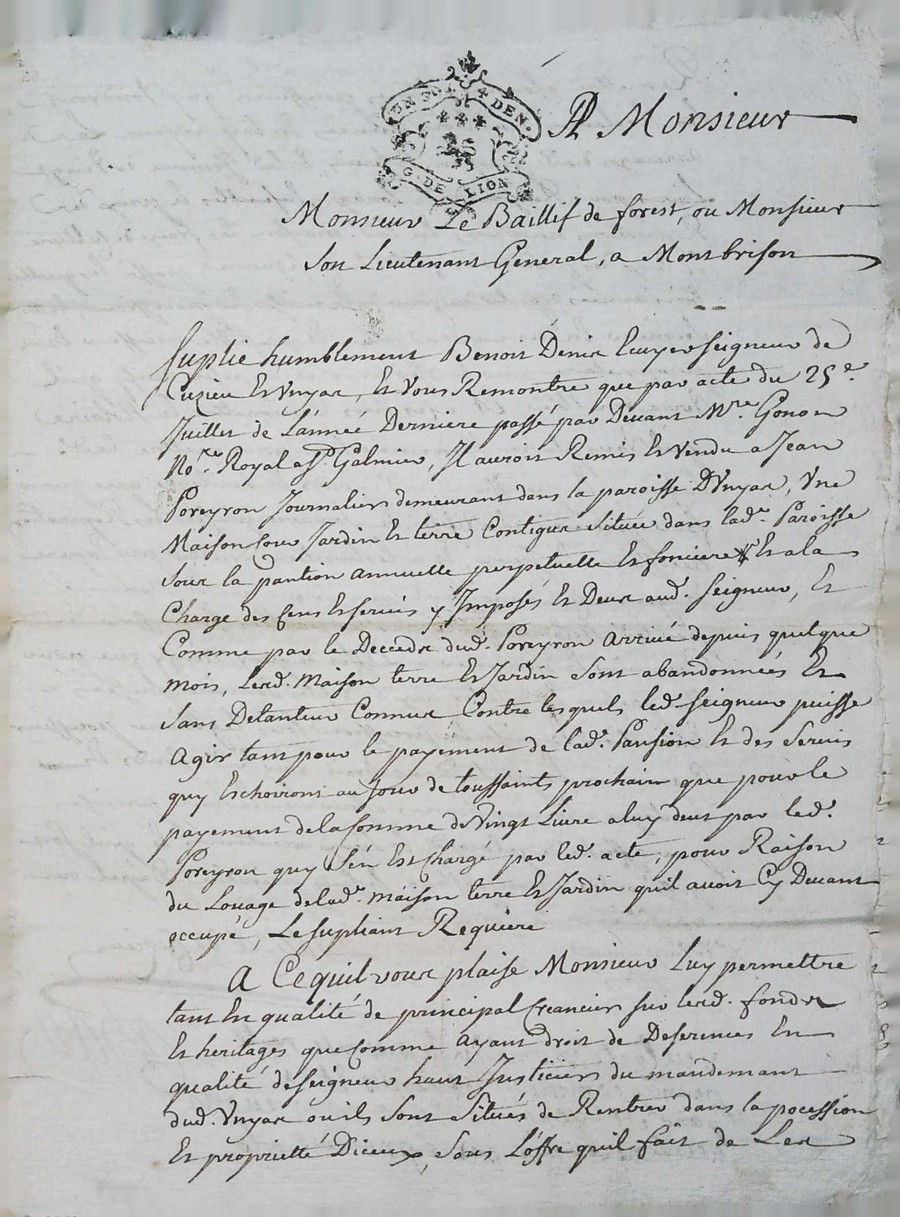 UN SOL 4 DEN.
G. DE LION
A Monsieur
Monsieur Le Baillif de forest, ou Monsieur
Son Lieutenant General, a Montbrison
Suplie humblement Benoit Denis Ecuyer seigneur de
Cuzieu Et Unyas, Et Vous Remontre que par acte du 25e.
Juillet de L'année Derniere passé par Devant Mre. Gonon
Nore. Royal a St. Galmier, Il auroit Remis Et Vendu a Jean
Poreyron Journalier demeurant dans la paroisse D'Unyas, Une
Maison Cour Jardin Et terre Contigus Située dans lade. Paroisse
Sous la pantion annuelle perpetuelle Et fonciere Et a la
Charge des Cens Et Servis y Imposés Et Deus aud. Seigneur, Et
Comme par le Deceds dud. Poreyron arrivé depuis quelque
mois, Lesd. maison terre Et Jardin Sont abandonnées Et
Sans Detanteur Connus, Contre lesquels led. Seigneur puisse
Agir tant pour le payement de lade. Pansion Et des Servis
quy Eschoiront au Jour de toussaints prochain que pour le
payement de la somme de Vingt Livre a luy deut par led.
Poreyron quy S'én Est Chargé par led. acte, pour Raison
du Louage de lade. maison terre Et Jardin qu'il avoit Cy Devant
occupé, Le supliant Requiere
A Ce quil vous plaise Monsieur Luy permettre
tant En qualité de principal Creancier sur lesd. fonds
Et heritages que Comme ayant droit de Deserences En
qualité de Seigneur haut Justicier du mandemant
dud. Unyas ou ils Sont Situés de Rentrer dans la pocession
Et proprietté D'iceux, Sous L'offre quil fait de Les